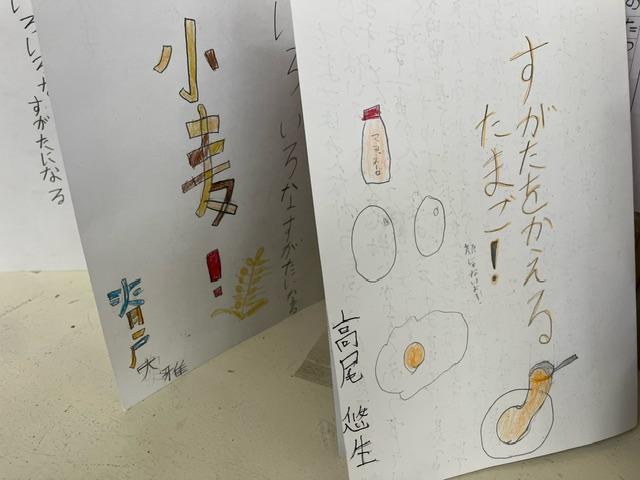 すがたをかえる
たまご!
マヨネーズ
高尾 悠生
いろいろなすがたになる
小麦!
青戸 大雅
すがたになる